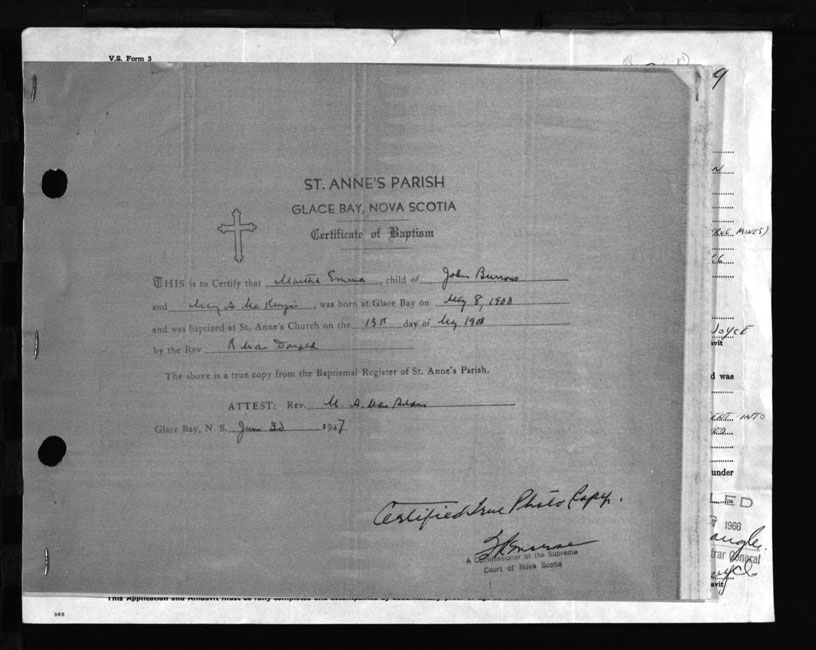 V.S. Form 3
9
ST. ANNE'S PARISH
GLACE BAY, NOVA SCOTIA
Certificate of Baptism
THIS is to Certify that Martha Emma, child of John Burrows
and Mary A McKenzie, was born at Glace Bay on May 8, 1900
and was baptized at St. Anne's Church on the 13th day of May 1900
by the Rev R MacDonald
The above is a true copy from the Baptismal Register of St. Anne's Parish.
ATTEST: Rev. M. A. Mac
Glace Bay, N. S. June 3d 1947
Certified True Photo Copy.
A Commissioner of the Supreme
Court of Nova Scotia
MINES)
OYCE
avit
d was
INTO
under
LED
1966
trar General
avit
This Application and Affidavit must be fully completed and accompanied by